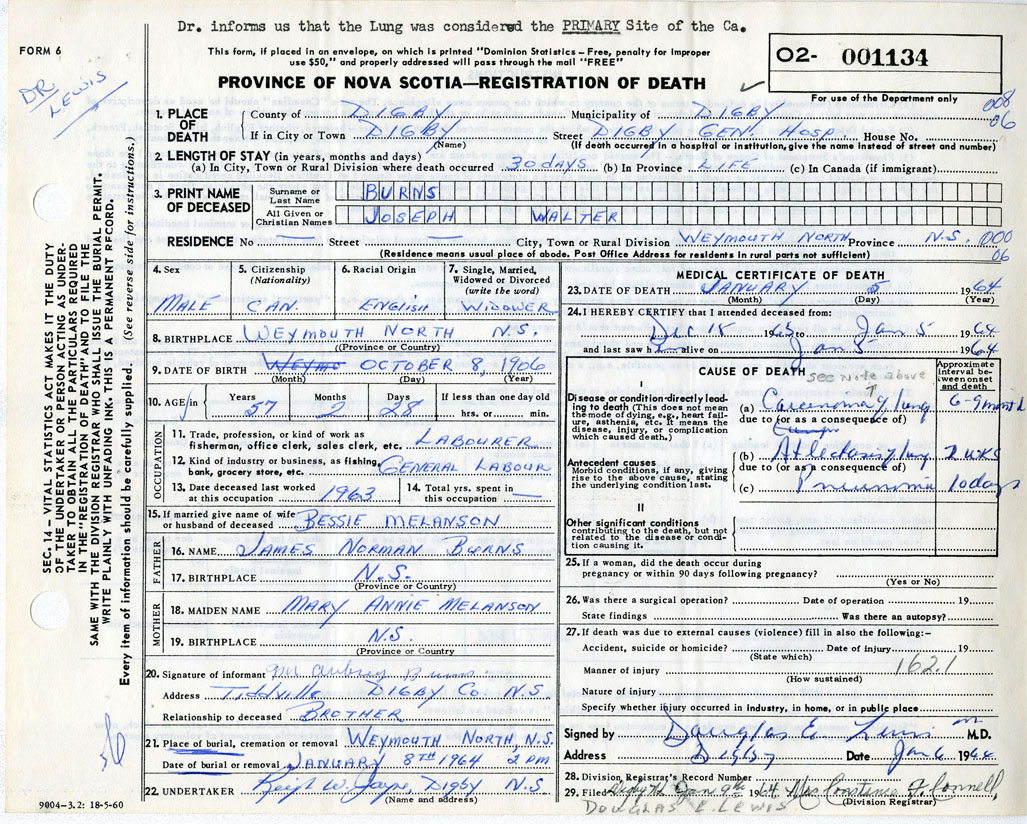 Dr. informs us that the Lung was considered the PRIMARY Site of the Ca.
FORM 6
DR LEWIS
This form, if placed in an envelope, on which is printed "Dominion Statistics – Free, penalty for improper
use $50," and properly addressed will pass through the mail "FREE"
PROVINCE OF NOVA SCOTIA—REGISTRATION OF DEATH
O2- 001134
For use of the Department only
008
06
1. PLACE OF DEATH
County of DIGBY Municipality of DIGBY
If in City or Town DIGBY Street DIGBY GEN. HOSP. House No.
(Name) (If death occurred in a hospital or institution, give the name instead of street and number)
2. LENGTH OF STAY (in years, months and days)
(a) In City, Town or Rural Division where death occurred 30 days (b) In Province LIFE (c) In Canada (if immigrant)
3. PRINT NAME OF DECEASED
Surname or Last Name BURNS
All Given or Christian Names JOSEPH WALTER
RESIDENCE No — Street — City, Town or Rural Division WEYMOUTH NORTH Province N.S. 000
(Residence means usual place of abode. Post Office Address for residents in rural parts not sufficient) 06
4. Sex MALE
5. Citizenship (Nationality) CAN.
6. Racial Origin ENGLISH
7. Single, Married, Widowed or Divorced (write the word) WIDOWER
8. BIRTHPLACE WEYMOUTH NORTH N.S.
(Province or Country)
9. DATE OF BIRTH OCTOBER 8, 1906
(Month) (Day) (Year)
10. AGE in Years 57 Months 2 Days 28 If less than one day old hrs. or min.
OCCUPATION
11. Trade, profession, or kind of work as fisherman, office clerk, sales clerk, etc. LABOURER
12. Kind of industry or business, as fishing, bank, grocery store, etc. GENERAL LABOUR
13. Date deceased last worked at this occupation 1963
14. Total yrs. spent in this occupation —
15. If married give name of wife or husband of deceased BESSIE MELANSON
FATHER
16. NAME JAMES NORMAN BURNS
17. BIRTHPLACE N.S.
(Province or Country)
MOTHER
18. MAIDEN NAME MARY ANNIE MELANSON
19. BIRTHPLACE N.S.
(Province or Country)
20. Signature of informant Aubrey Burns
Address Tiddville DIGBY CO N.S
Relationship to deceased BROTHER
21. Place of burial, cremation or removal WEYMOUTH NORTH, N.S.
Date of burial or removal JANUARY 8TH 1964 2 PM
22. UNDERTAKER W. DIGBY N.S
(Name and address)
9004–3.2: 18-5-60
SEC. 14 – VITAL STATISTICS ACT MAKES IT THE DUTY
OF THE UNDERTAKER OR PERSON ACTING AS UNDER-
TAKER TO OBTAIN ALL THE PARTICULARS REQUIRED
IN THE "REGISTRATION OF DEATH" AND TO FILE THE
SAME WITH THE DIVISION REGISTRAR WHO SHALL ISSUE THE BURIAL PERMIT.
WRITE PLAINLY WITH UNFADING INK. THIS IS A PERMANENT RECORD.
Every item of information should be carefully supplied. (See reverse side for instructions.)
MEDICAL CERTIFICATE OF DEATH
23. DATE OF DEATH JANUARY 5 1964
(Month) (Day) (Year)
24. I HEREBY CERTIFY that I attended deceased from:
Dec 18 1963 to Jan 5 1964
and last saw h alive on Jan 5 1964
CAUSE OF DEATH see Note above
Approximate interval between onset and death
I
Disease or condition directly leading to death (This does not mean the mode of dying, e.g., heart failure, asthenia, etc. It means the disease, injury, or complication which caused death.)
(a) Carcinoma of lung 6-9 months
due to (or as a consequence of)
Antecedent causes
Morbid conditions, if any, giving rise to the above cause, stating the underlying condition last.
(b) Atelectasis of lung 2 WKS
due to (or as a consequence of)
(c) Pneumonia 10 days
II
Other significant conditions
contributing to the death, but not related to the disease or condition causing it.
25. If a woman, did the death occur during pregnancy or within 90 days following pregnancy?
(Yes or No)
26. Was there a surgical operation? Date of operation 19
State findings Was there an autopsy?
27. If death was due to external causes (violence) fill in also the following:–
Accident, suicide or homicide? Date of injury 19
(State which)
Manner of injury 162.1
(How sustained)
Nature of injury
Specify whether injury occurred in industry, in home, or in public place
Signed by Douglas E Lewis M.D.
Address Digby Date Jan 6 1964
28. Division Registrar's Record Number
29. Filed Digby NS Jan 9th 1964 Mrs Constance A. Connell,
DOUGLAS E. LEWIS (Division Registrar)